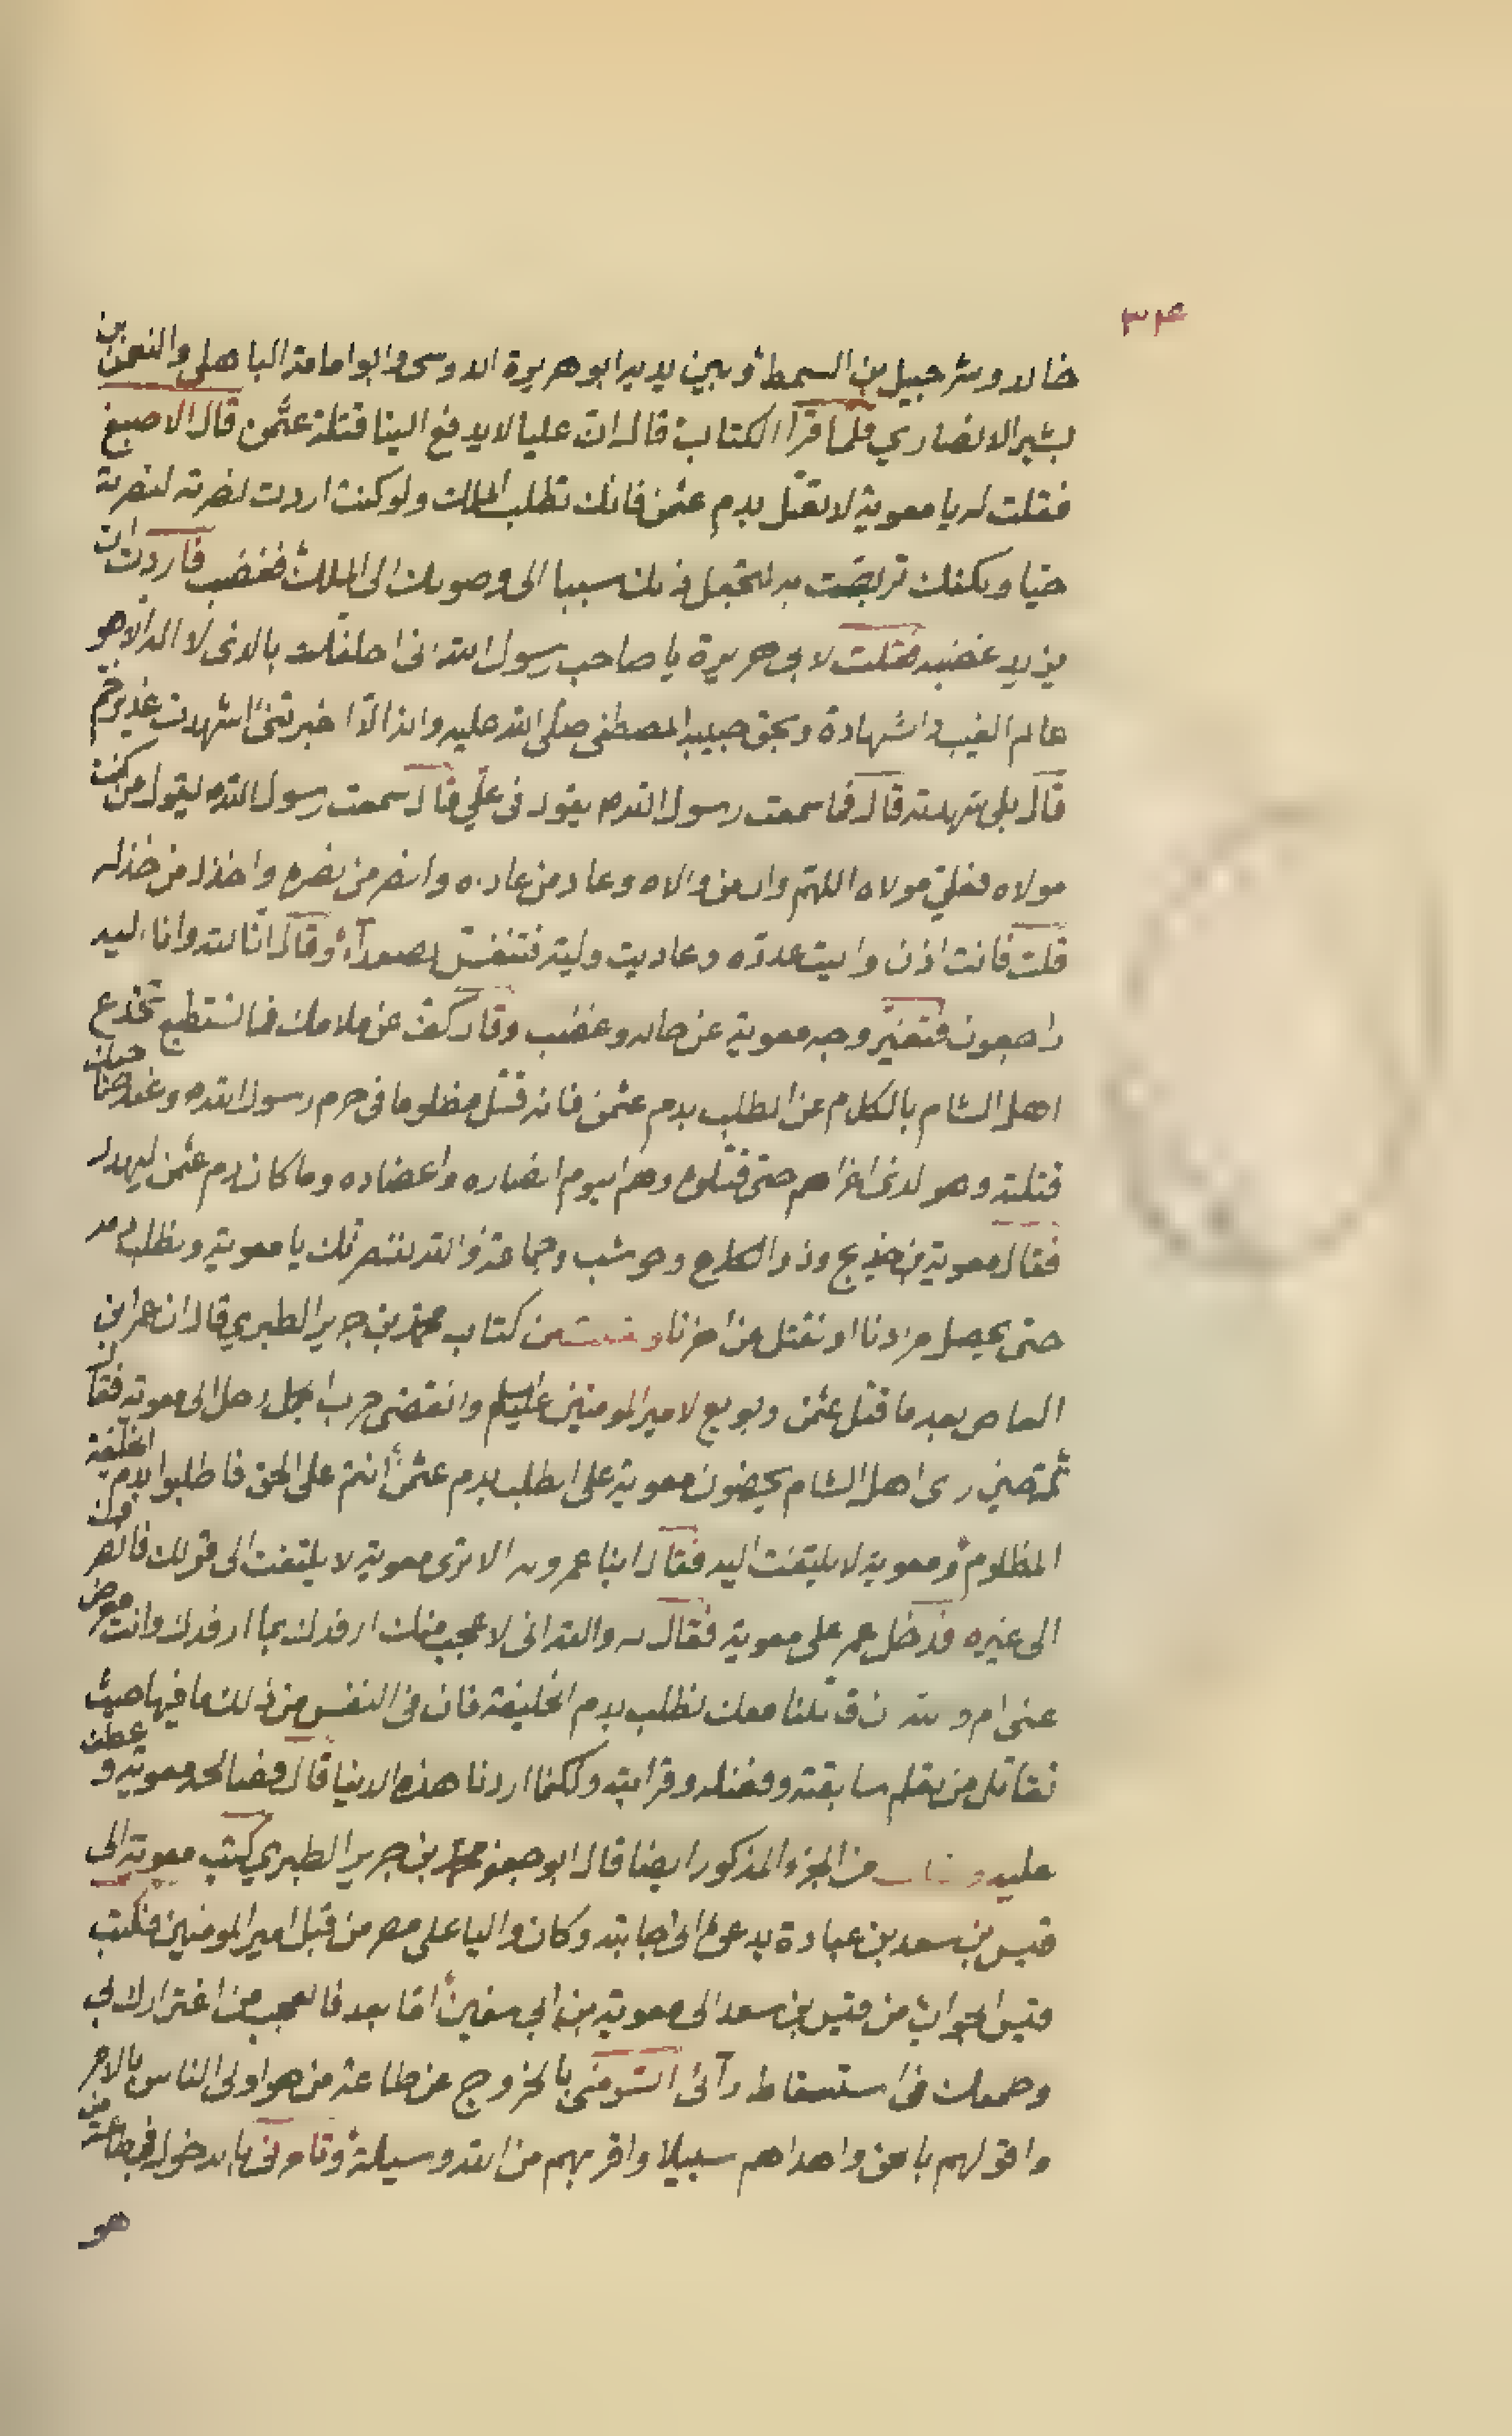 ٣٤
خالد وشرحبيل بن السمط وبين يديه ابو هريرة الدوسى وابو امامة الباهلى والنعمن بن
بشير الانصاري فلما قرا الكتاب قال ان عليا لا يدفع الينا قتلة عثمن قال الاصبغ
فقلت له يا معوية لا تعتل بدم عثمن فانك تطلب الملك ولو كنت اردت نصرته لنصرته
حيا ولكنك تربصت به لتجعل ذلك سببا الى وصولك الى الملك فغضب فاردت ان
يزيد غضبه فقلت لابى هريرة يا صاحب رسول الله انى احلفك بالذى لا اله الا هو
عالم الغيب والشهادة وبحق حبيبه المصطفى صلى الله عليه واله الا اخبرتنى اشهدت غدير خم
قال بلى شهدته قال فما سمعت رسول الله ص يقول فى علي قال سمعت رسول الله ص يقول من كنت
مولاه فعلي مولاه اللهم وال من والاه وعاد من عاداه وانصر من نصره واخذل من خذله
قلت فانت اذن واليت عدوه وعاديت وليه فتنفس الصعداء وقال انا لله وانا اليه
راجعون فتغير وجه معوية عن حاله وغضب وقال كف عن كلامك فما تستطيع تخدع
اهل الشام بالكلام عن الطلب بدم عثمن فانه قتل مظلوما فى حرم رسول الله ص وعند صاحبك
قتلته وهو الذى اغراهم حتى قتلوه وهم اليوم انصاره واعضاده وما كان دم عثمن ليهدر
فقال معوية بن خديج وذو الكلاع وحوشب وجماعة والله لننصرنك يا معوية ونطلب دمه
حتى يحصل مرادنا او نقتل عن اخرنا ونقلت من كتاب محمد بن جرير الطبري قال ان عمرو بن
العاص بعد ما قتل عثمن وبويع لامير المومنين عليه السلام وانقضى حرب الجمل رحل الى معوية فقال
ثمتصين راى اهل الشام يحضون معوية على الطلب بدم عثمن انتم على الحق فاطلبوا بدم الخليفة
المظلوم ومعوية لا يلتفت اليه فقال ابنا عمرو له الا ترى معوية لا يلتفت الى قولك فانصرف
الى غيره فدخل عمر على معوية فقال له والله انى لاعجب منك ارفدك بما ارفدك وانت معرض
عنى ام والله ان قاتلنا معك نطلب بدم الخليفة فان فى النفس من ذلك ما فيها حيث
نقاتل من تعلم سابقته وفضله وقرابته ولكنا اردنا هذه الدنيا قال فصالحه معوية وعطف
عليه ونقلت من الجزء المذكور ايضا قال ابو جعفر محمد بن جرير الطبري كتب معوية الى
قيس بن سعد بن عبادة يدعوه الى اجابته وكان واليا على مصر من قبل امير المومنين فكتب
قيس الجواب من قيس بن سعد الى معوية بن ابي سفين اما بعد فالعجب من اغترارك بي
وطمعك فى استسقاط رائى اتسومنى بالخروج عن طاعة من هو اولى الناس بالامر
واقولهم بالحق واهداهم سبيلا واقربهم من الله وسيلة وتامرنى بالدخول فى طاعة من
هو